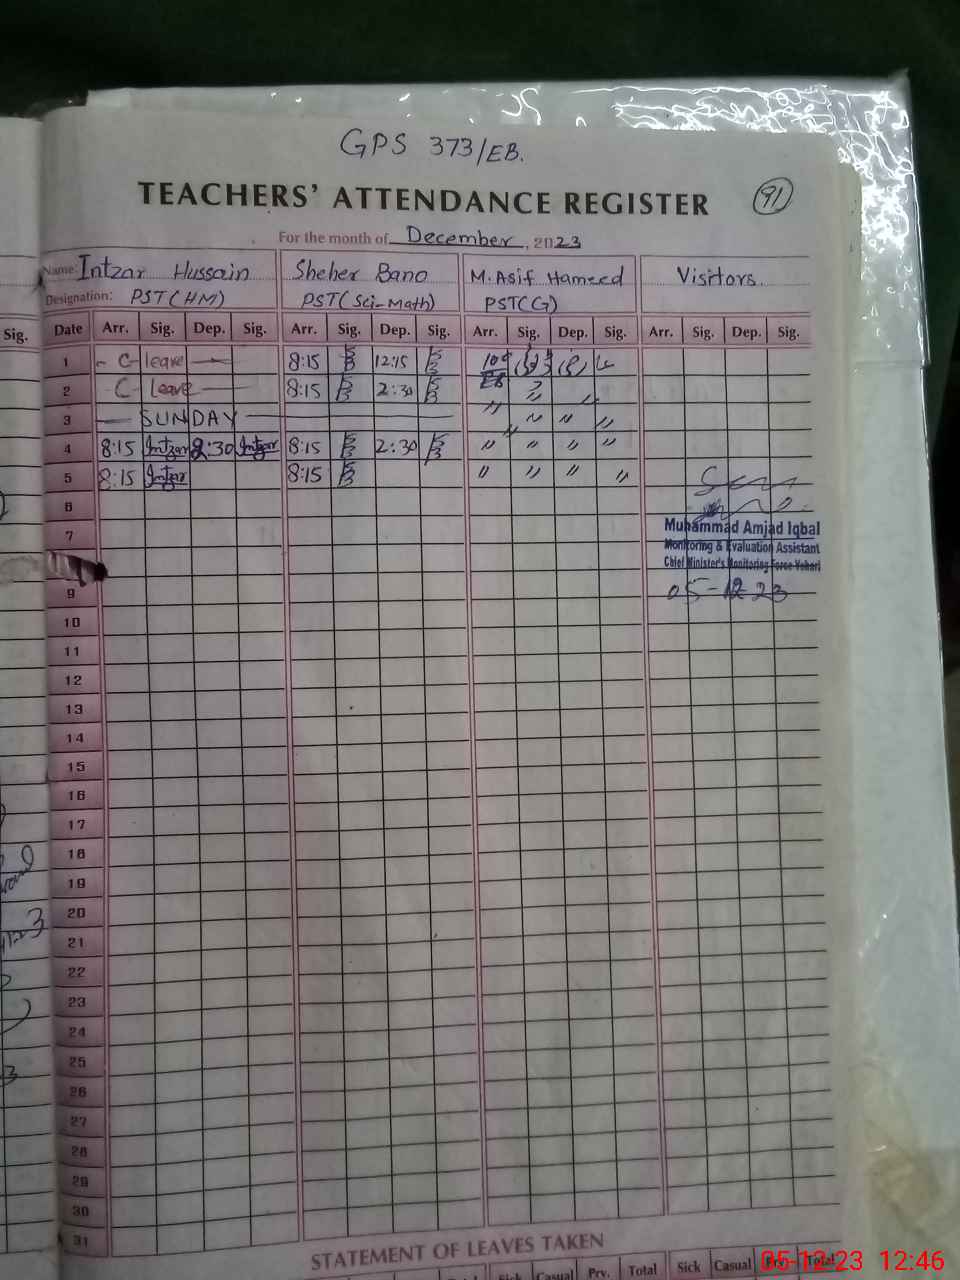 GPS 373/EB.
TEACHERS' ATTENDANCE REGISTER 91
For the month of December, 2023
Name: Intzar Hussain Sheher Bano M. Asif Hameed Visitors.
Designation: PST(HM) PST(Sci-Math) PST(G)
Sig. Date Arr. Sig. Dep. Sig. Arr. Sig. Dep. Sig. Arr. Sig. Dep. Sig. Arr. Sig. Dep. Sig.
1 - C- leave 8:15 12:15
2 C- leave 8:15 2:30 EB
3 SUNDAY
4 8:15 Intzar 2:30 Intzar 8:15 2:30 " " " "
5 8:15 Intzar 8:15 " " " "
6
7
Muhammad Amjad Iqbal
Monitoring & Evaluation Assistant
Chief Minister's Monitoring Force Vehari
9 05-12 23
10
11
12
13
14
15
16
17
18
19
20
21
22
23
24
25
26
27
28
29
30
31
STATEMENT OF LEAVES TAKEN
Total Sick Casual Prv. Total Sick Casual Prv. Total
05-12-23 12:46